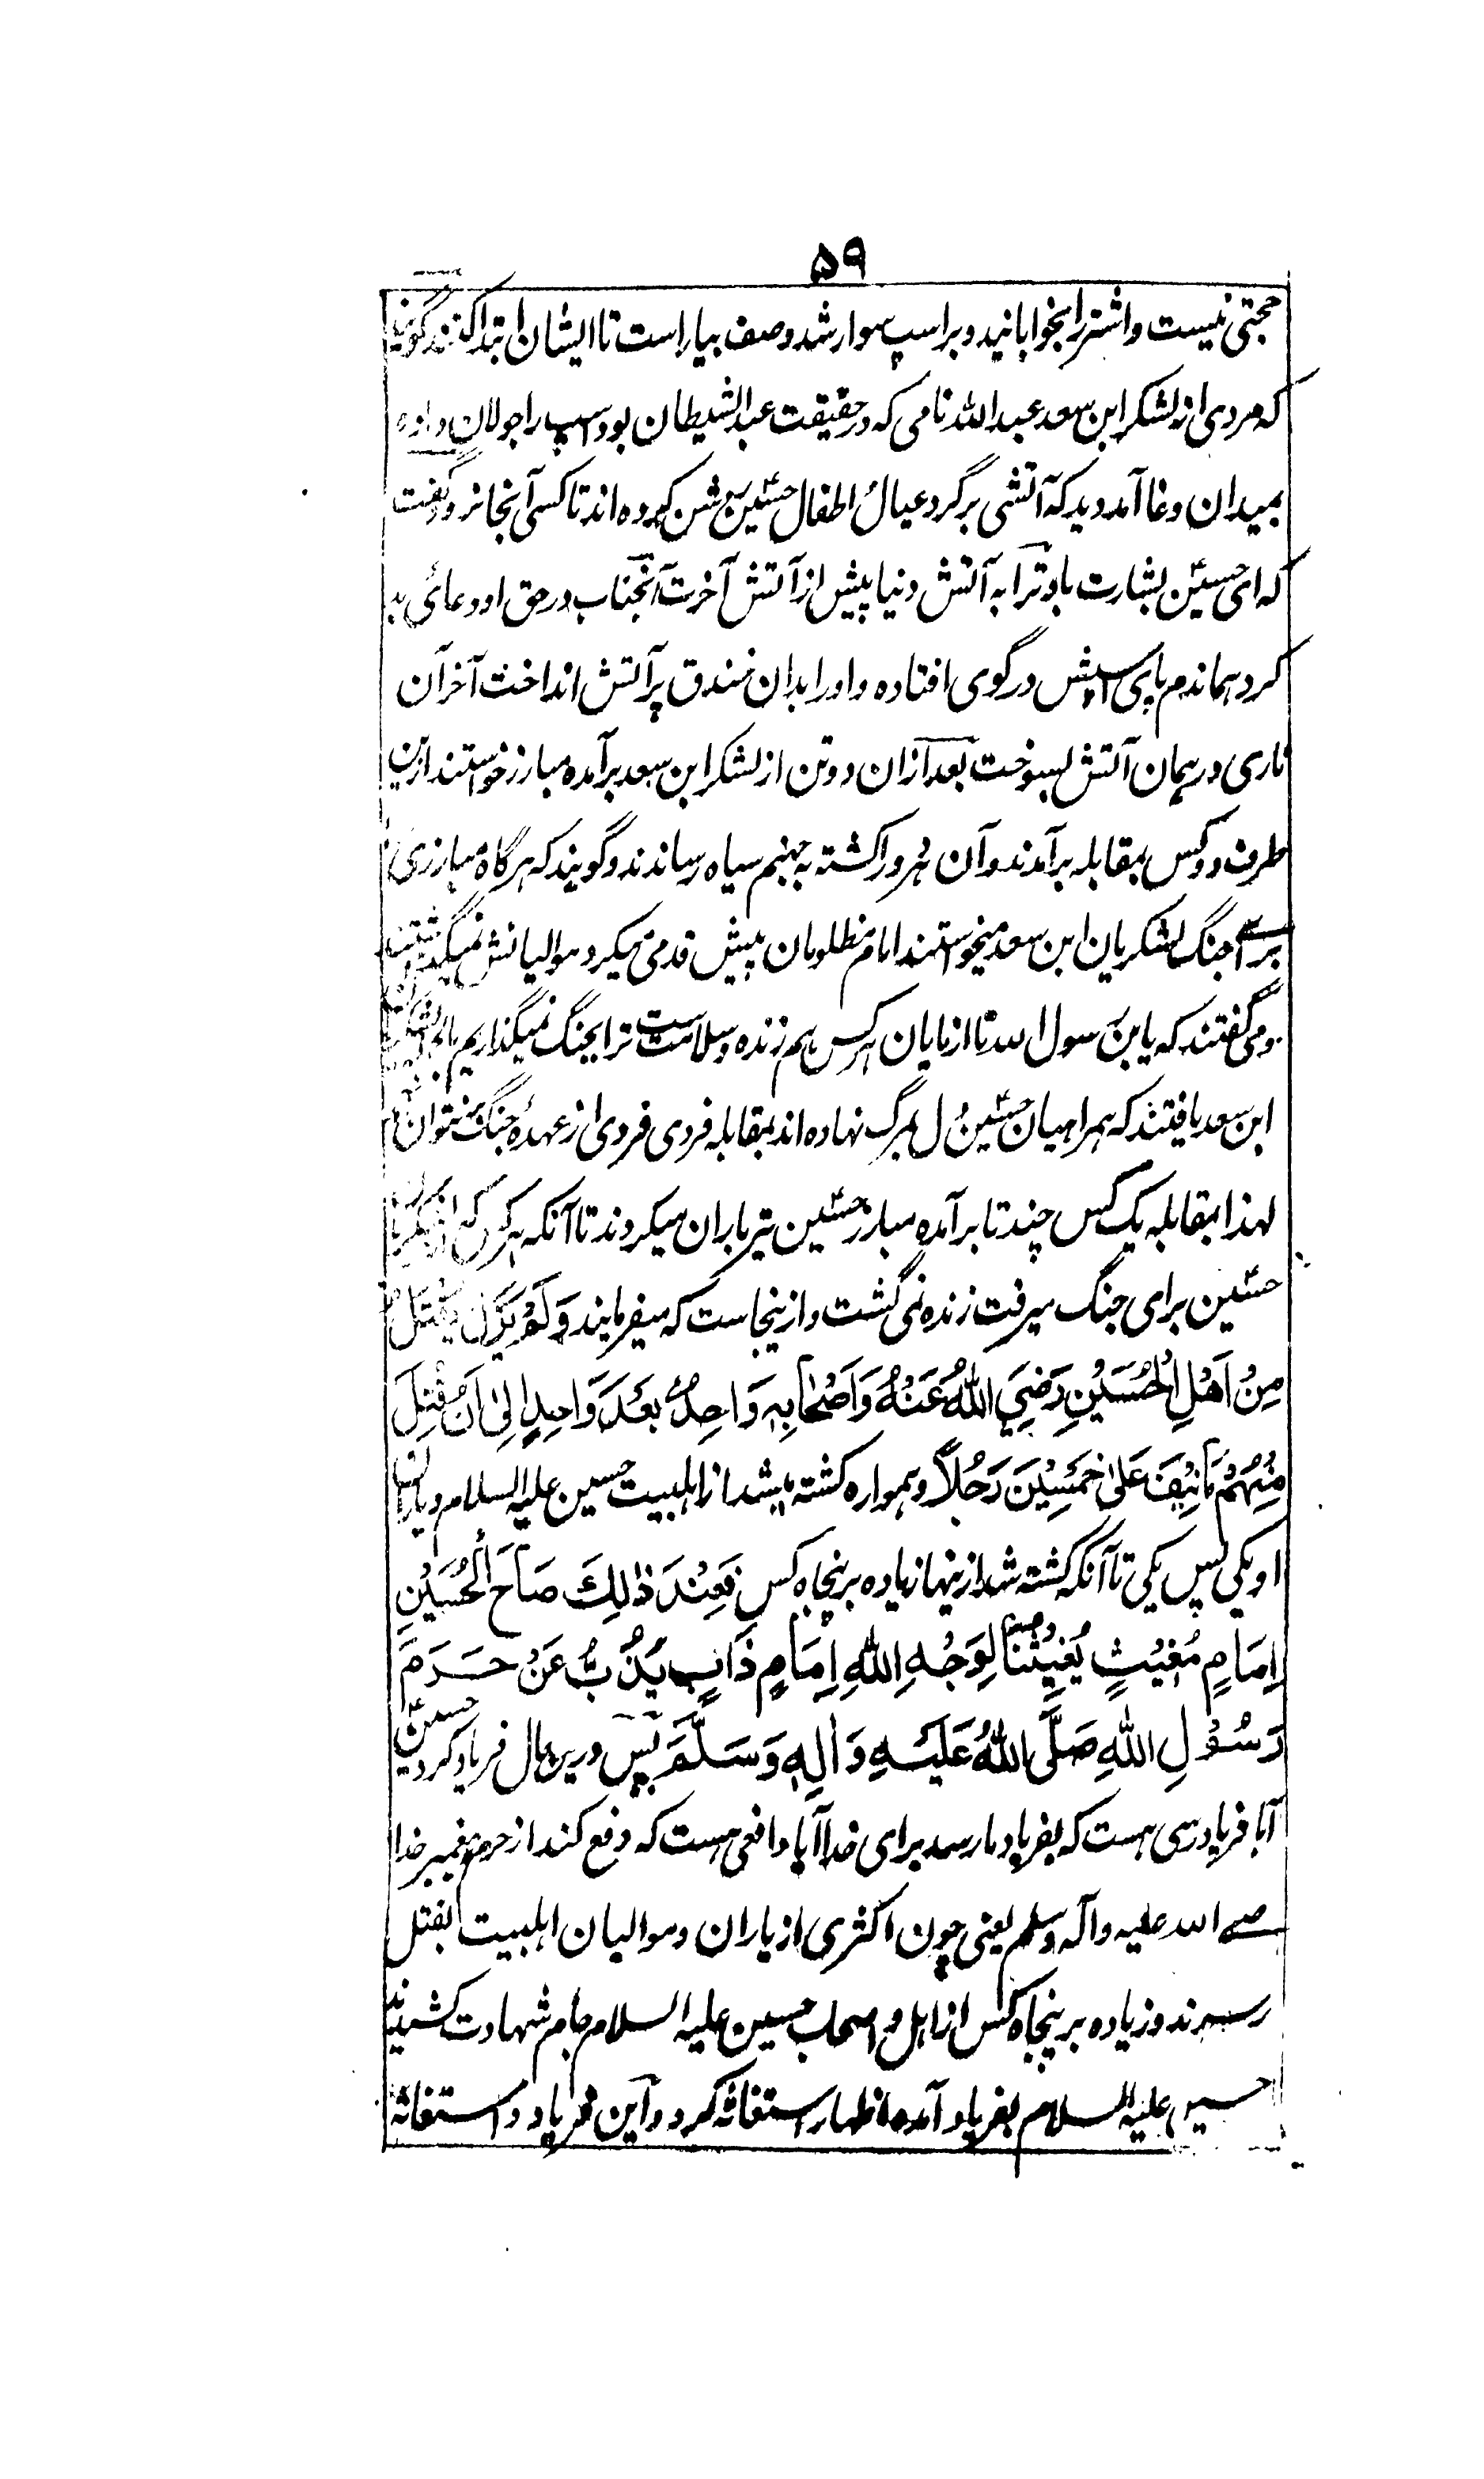 ۵۹
حجتی نیست و اشتر را بخوابانید و بر اسپ سوار شد و صف بیاراست تا ایشان ابتدا کنند گویند
که مردی از لشکر ابن سعد عبد الله نامی که در حقیقت عبد الشیطان بود اسپ را جولان داده
بمیدان وغا آمد دید که آتشی بر گرد عیال و اطفال حسینؑ روشن کرده اند تا کسی آنجا نرود گفت
که ای حسینؑ بشارت باد ترا به آتش دنیا پیش از آتش آخرت آنجناب در حق او دعائی بد
کرد هماندم پای اسپش در گوی افتاده و او را بدان خندق پر آتش انداخت آخر آن
ناری در همان آتش بسوخت بعد ازان دو تن از لشکر ابن سعد برآمده مبارز خواستند ازین
طرف دو کس بمقابله برآمدند و آن هر دو را کشته به جهنم سیاه رساندند و گویند که هرگاه مبارزی
برای جنگ لشکریان ابن سعد میخواستند امام مظلومان پیش قدمی میکرد موالیانش نمیگذاشتند
و می گفتند که یا ابن رسول الله تا از مایان هر کس هم زنده و سلامت ست ترا بجنگ نمیگذاریم
ابن سعد یافتند که همراهیان حسینؑ دل بمرگ نهاده اند بمقابله فردی فردی از عهدهٔ جنگ نتوان
لهذا بمقابله یک کس چند تا برآمده مبارز حسینؑ تیر باران میکردند تا آنکه هر کس که از
حسینؑ برای جنگ میرفت زنده نمی گشت و ازینجاست که میفرمایند وَلَمْ يَزَلْ يُقْتَلُ
مِنْ اَهْلِ الْحُسَيْنِ رَضِيَ اللهُ عَنْهُ وَاَصْحَابِهٖ وَاحِدٌ بَعْدَ وَاحِدٍ اِلىٰ اَنْ قُتِلَ
مِنْهُمْ مَا نِيْفَ عَلىٰ خَمْسِيْنَ رَجُلًا و همواره کشته میشد از اهلبیت حسین علیه السلام و یاران
او یکی پس یکی تا آنکه کشته شد از ینها زیاده بر پنجاه کس فَعِنْدَ ذٰلِكَ صَاحَ الْحُسَيْنِ
اِمَامٍ مُغِيْثٍ يُغِيْثُنَا لِوَجْهِ اللهِ اِمَامٍ ذَابٍ يَذُبُّ عَنْ حَرَمَ
رَسُوْلِ اللهِ صَلَّى اللهُ عَلَيْهِ وَاٰلِهٖ وَسَلَّمَ پس درین حال فریاد کرد حسینؑ
آیا فریادرسی هست که بفریاد ما رسد برای خدا آیا دافعی هست که دفع کند از حرم پیغمبر خدا
صلے الله علیه و آله وسلم یعنی چون اکثری از یاران و موالیان اہلبیت بقتل
رسیدند و زیاده بر پنجاه کس از اہل و اصحاب حسین علیه السلام جام شهادت کشیدند
حسین علیه السلام بفریاد آمده اظهار استغاثه کرد و این فریاد و استغاثه